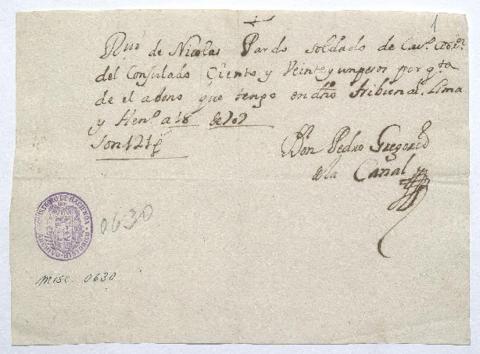 1
Rvi de Nicolas Pardo soldado de Cav.ª
del Consulado Ciento y Veinte y un pesos por qta
de el abono que tengo en dho Tribunal. Lima
y Hen.º a 18 de
Son 121 p
Don Pedro Gregorio
de la Canal
0630
MINISTERIO DE HACIENDA
misc. 0630